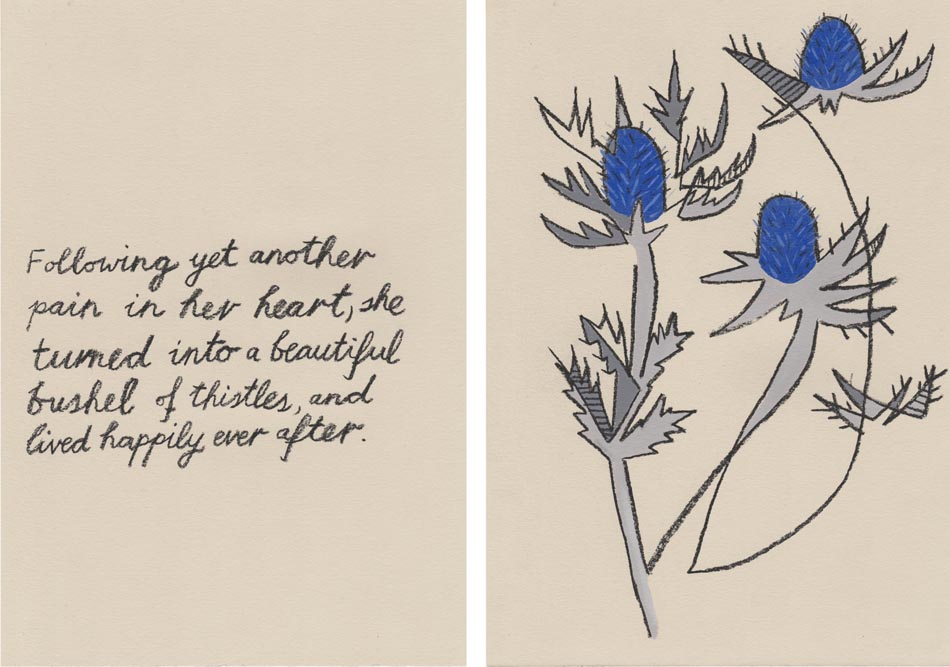 Following yet another
pain in her heart, she
turned into a beautiful
bushel of thistles, and
lived happily ever after.